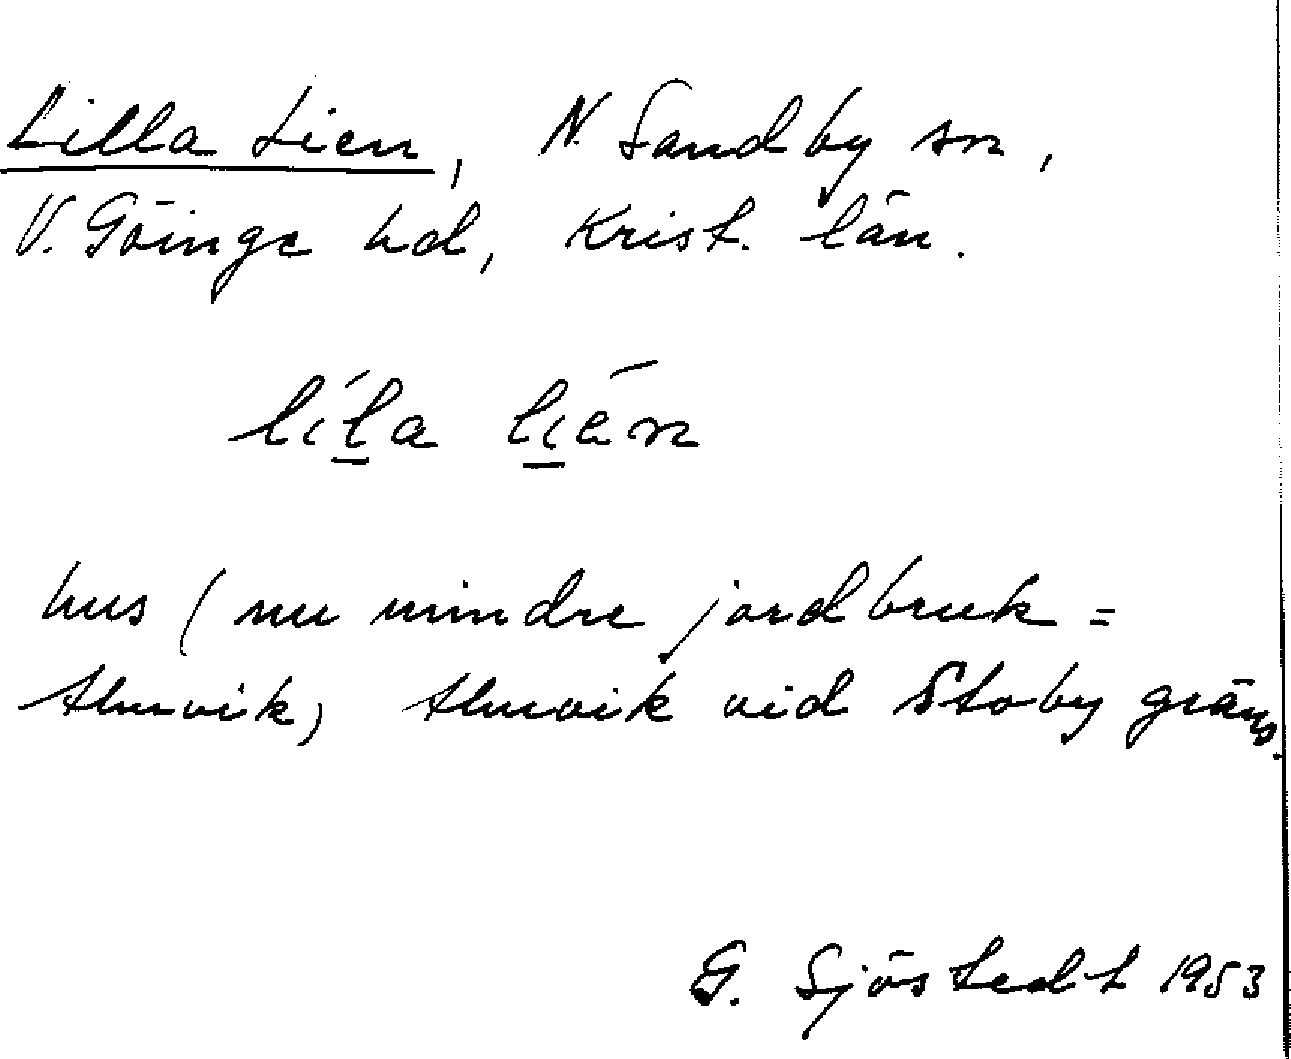 Lilla Lien, N. Sandby sn,
V. Göinge hd, Krist. län.
líl̲a li̲e̅n
hus (nu mindre jordbruk =
slmvik) slmvik vid Stoby gräns.
G. Sjöstedt 1953